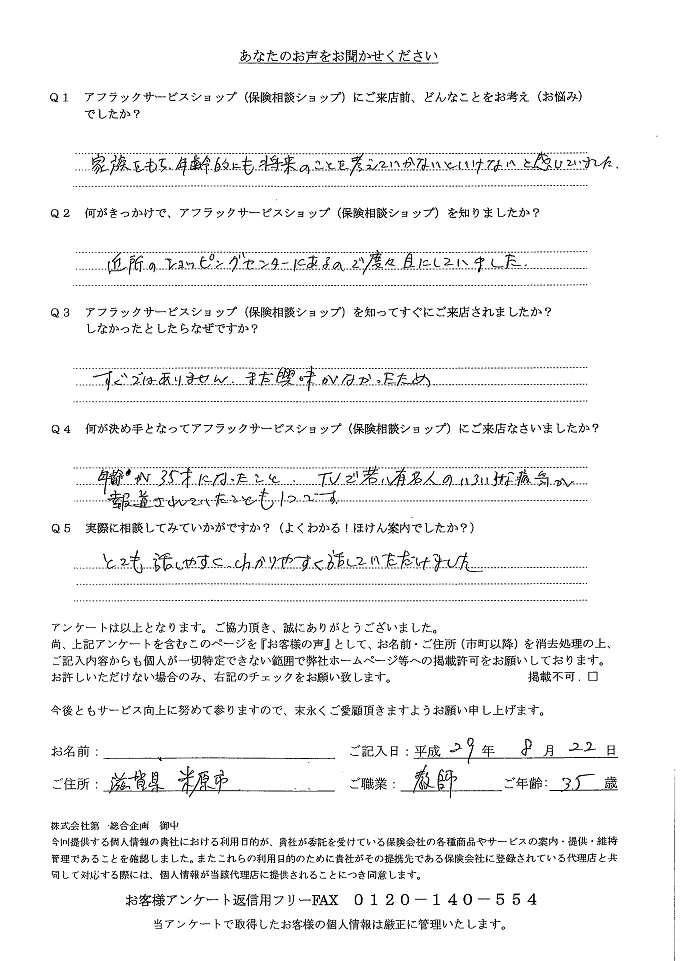 あなたのお声をお聞かせください
Q1 アフラックサービスショップ（保険相談ショップ）にご来店前、どんなことをお考え（お悩み）
でしたか？
家族をもち、年齢的にも将来のことを考えていかないといけないと感じていました。
Q2 何がきっかけで、アフラックサービスショップ（保険相談ショップ）を知りましたか？
近所のショッピングセンターにあるので度々目にしていました。
Q3 アフラックサービスショップ（保険相談ショップ）を知ってすぐにご来店されましたか？
しなかったとしたらなぜですか？
すぐではありません。まだ興味がなかったため
Q4 何が決め手となってアフラックサービスショップ（保険相談ショップ）にご来店なさいましたか？
年齢が35才になったこと、TVで若い有名人のいろいろな病気が
報道されていたことも1つです。
Q5 実際に相談してみていかがですか？（よくわかる！ほけん案内でしたか？）
とても話しやすく、わかりやすく話していただけました
アンケートは以上となります。ご協力頂き、誠にありがとうございました。
尚、上記アンケートを含むこのページを『お客様の声』として、お名前・ご住所（市町以降）を消去処理の上、
ご記入内容からも個人が一切特定できない範囲で弊社ホームページ等への掲載許可をお願いしております。
お許しいただけない場合のみ、右記のチェックをお願い致します。 掲載不可．□
今後ともサービス向上に努めて参りますので、末永くご愛顧頂きますようお願い申し上げます。
お名前： ご記入日：平成 29 年 8 月 22 日
ご住所： 滋賀県 米原市 ご職業： 教師 ご年齢： 35 歳
株式会社第一総合企画 御中
今回提供する個人情報の貴社における利用目的が、貴社が委託を受けている保険会社の各種商品やサービスの案内・提供・維持
管理であることを確認しました。またこれらの利用目的のために貴社がその提携先である保険会社に登録されている代理店と共
同して対応する際には、個人情報が当該代理店に提供されることにつき同意します。
お客様アンケート返信用フリーFAX 0120－140－554
当アンケートで取得したお客様の個人情報は厳正に管理いたします。